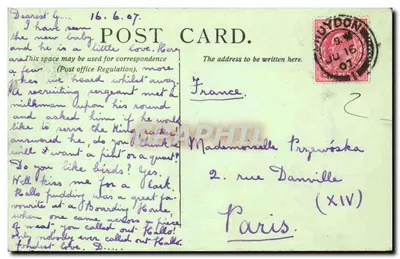 Dearest G... 16.6.07.
I have seen
the new baby
and he is a little love. Here
are
a few more
jokes we heard whilst away.
A recruiting sergeant met a
milkman upon his round
and asked him if he would
like to serve the King
answered he, do you think
want a pint or a quart?
Do you like birds? Yes.
Well kiss me for a lark.
Hallo pudding was a great fa-
vourite at a Boarding House,
when one came across a piece
of meat, you called out Hallo!
only nobody ever called out Hallo.
fondest love. D......
POST CARD.
This space may be used for correspondence
(Post office Regulation).
The address to be written here.
CROYDON
9 PM
JU 16
07
France.
Mademoiselle Przewóska
2. rue Danville
(XIV)
Paris.